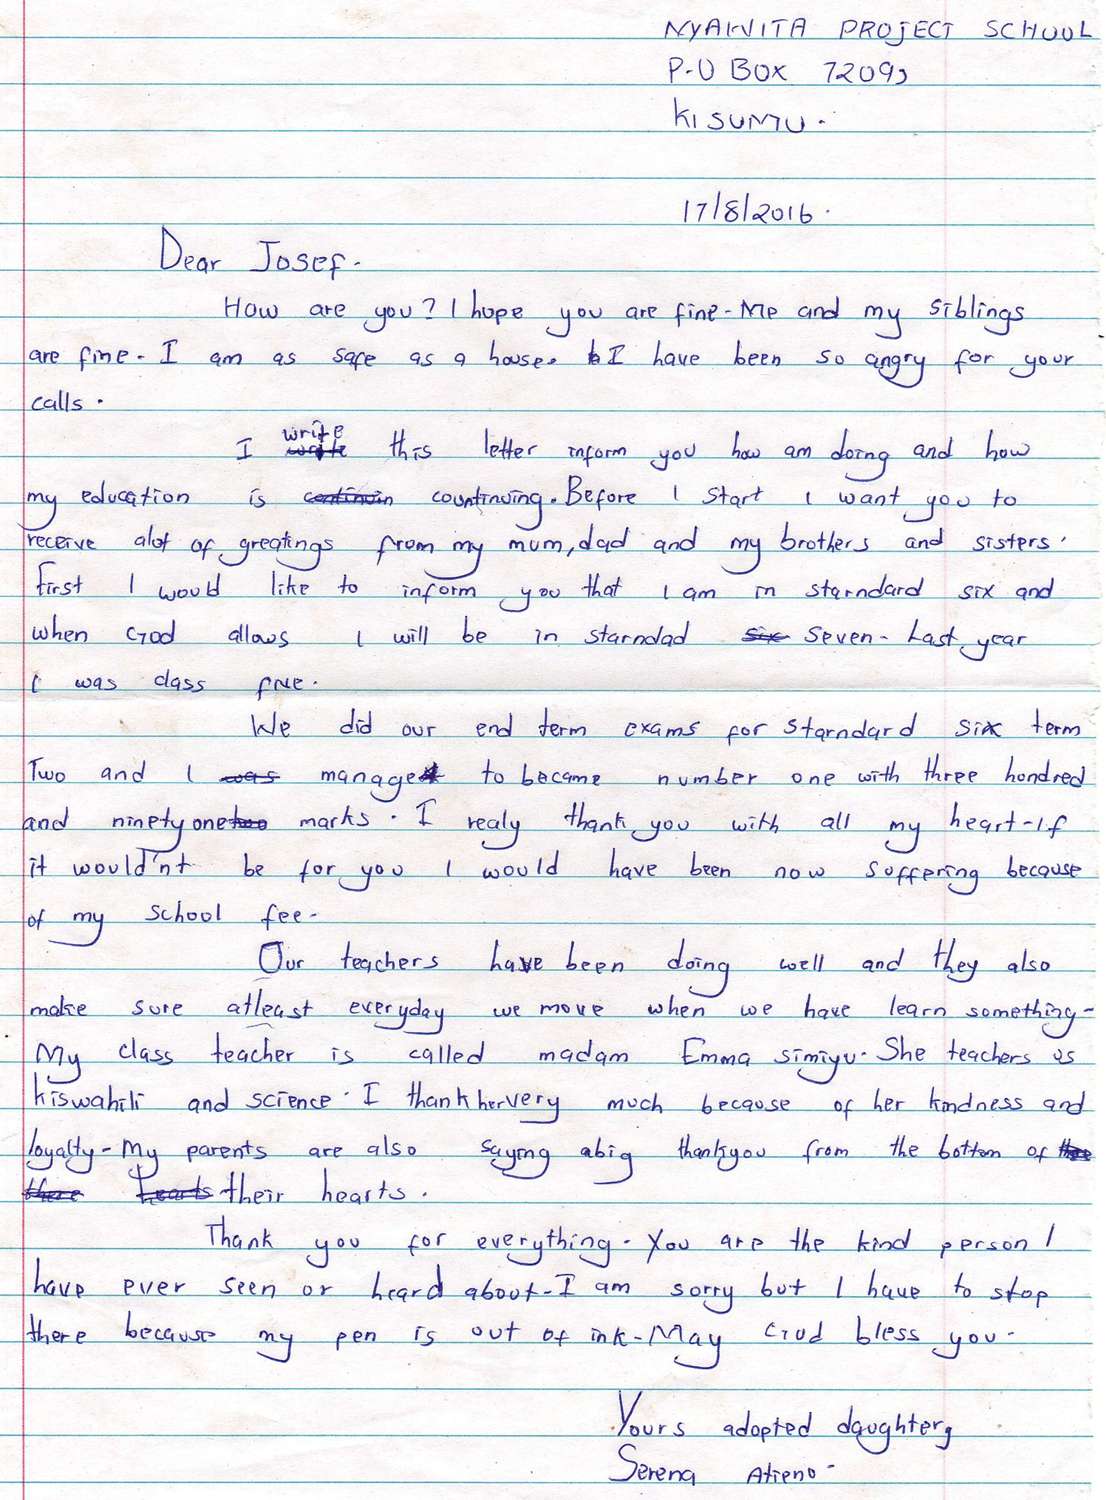 NYAKVITA PROJECT SCHOOL
P.O BOX 7209,
KISUMU.
17/8/2016.
Dear Josef.
How are you? I hope you are fine. Me and my siblings
are fine. I am as safe as a house. I have been so angry for your
calls.
I write this letter inform you how am doing and how
my education is countinuing. Before I start I want you to
receive alot of greatings from my mum, dad and my brothers and sisters.
First I would like to inform you that I am in starndard six and
when God allows I will be in starndad seven. Last year
I was class five.
We did our end term exams for starndard six term
Two and I manage to became number one with three hondred
and ninety one marks. I realy thank you with all my heart. If
it would'nt be for you I would have been now suffering because
of my school fee.
Our teachers have been doing well and they also
make sure atleast everyday we move when we have learn something.
My class teacher is called madam Emma Simiyu. She teachers us
kiswahili and science. I thank her very much because of her kindness and
loyalty. My parents are also saying abig thankyou from the bottom of
their hearts.
Thank you for everything. You are the kind person I
have ever seen or heard about. I am sorry but I have to stop
there because my pen is out of ink. May God bless you.
Yours adopted daughter,
Serena Atieno.